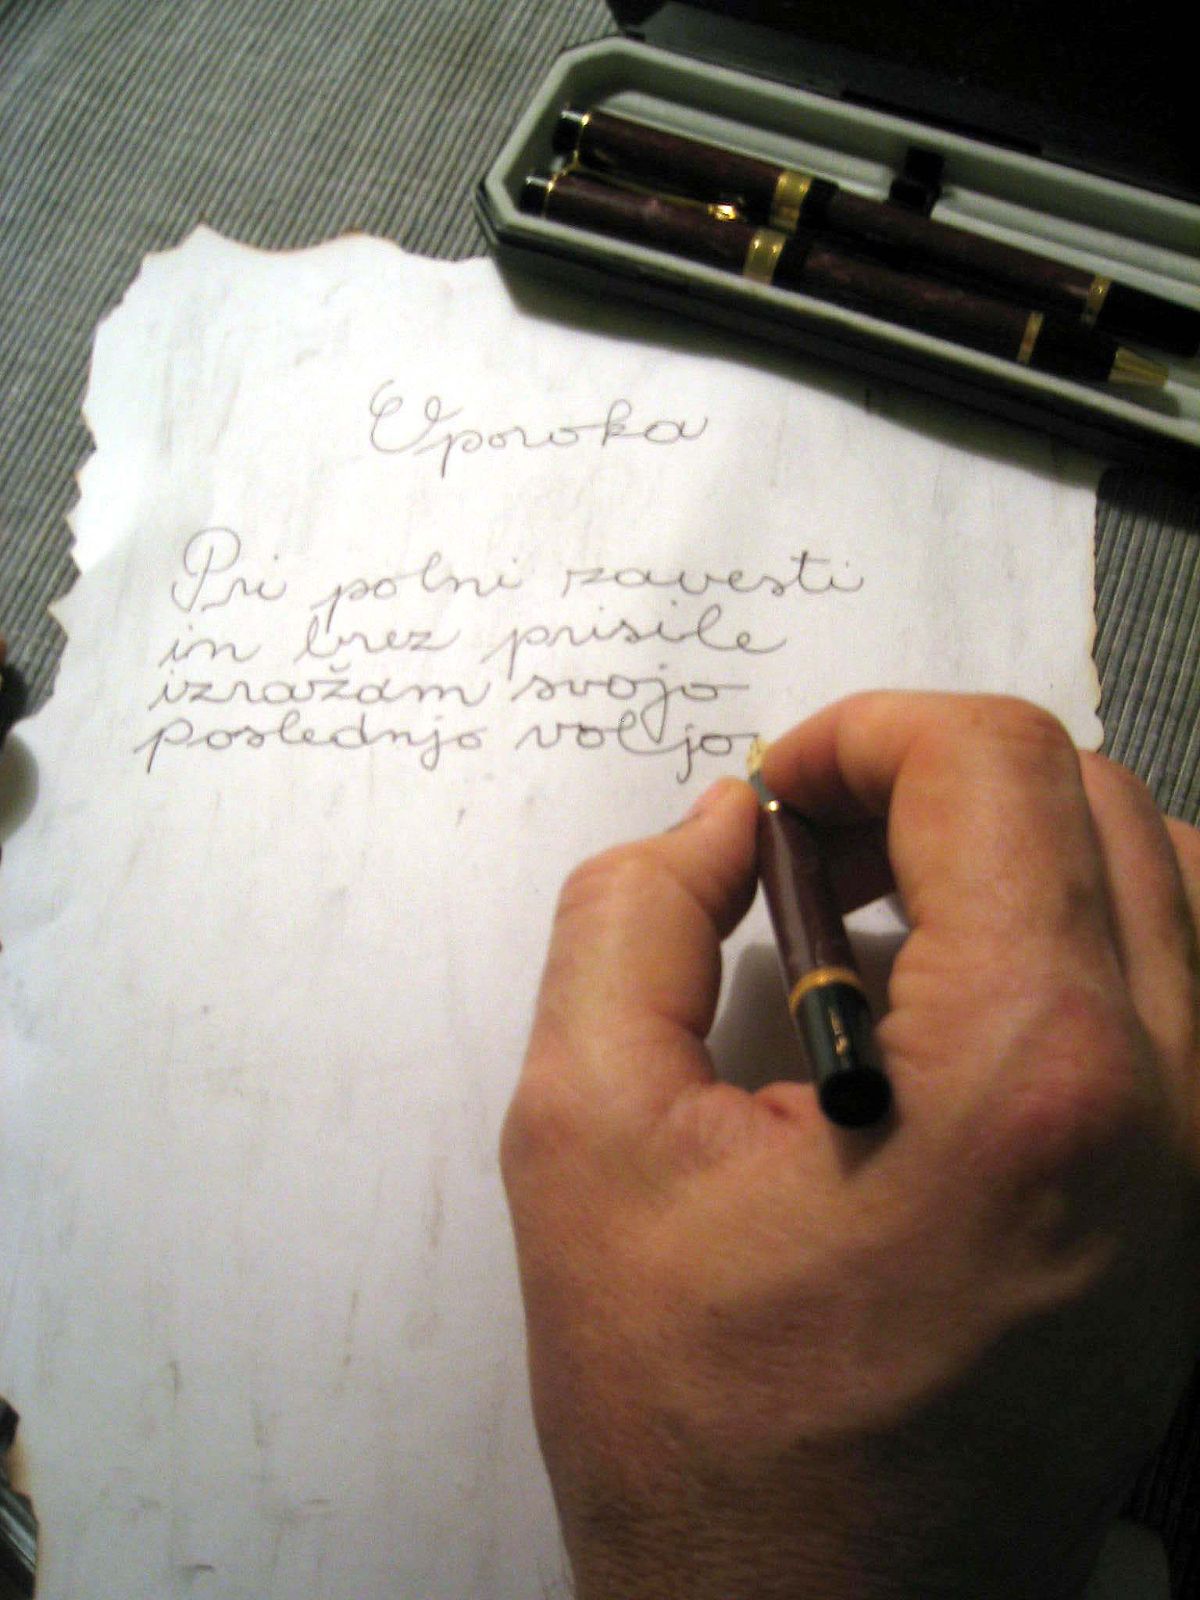 Oporoka
Pri polni zavesti
in brez prisile
izražam svojo
poslednjo voljo